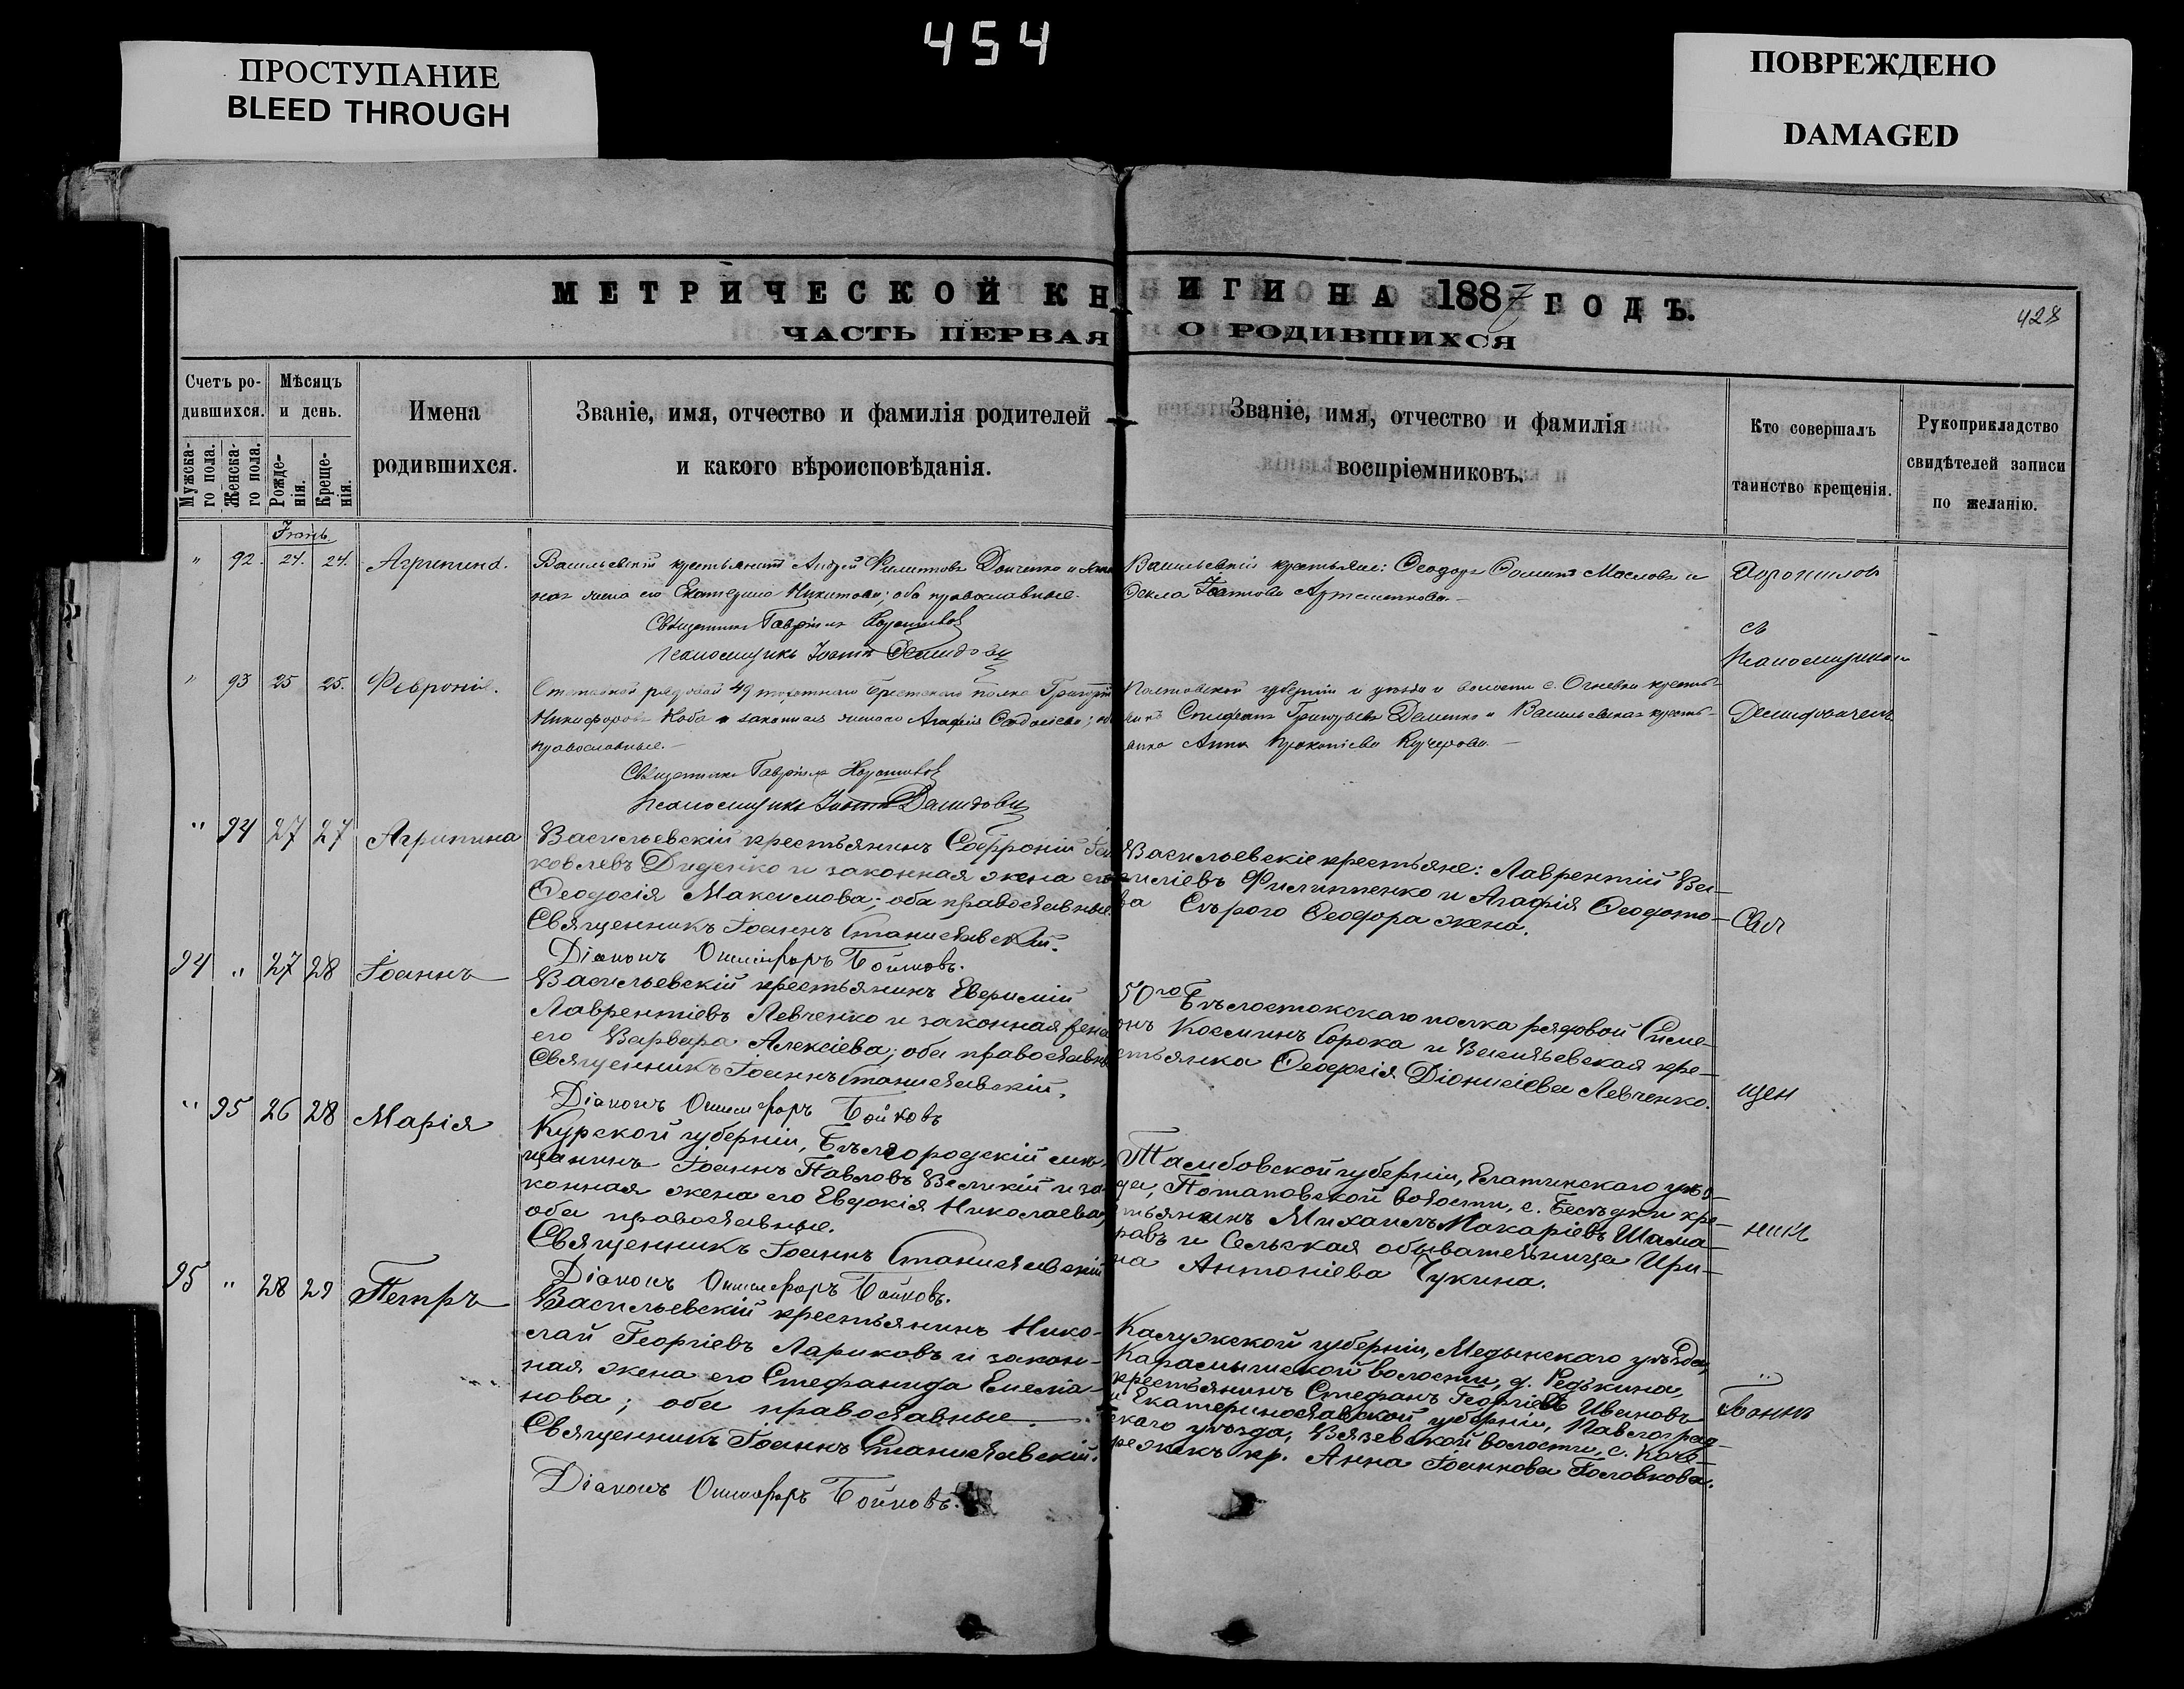 454
ПРОСТУПАНИЕ
BLEED THROUGH
ПОВРЕЖДЕНО
DAMAGED
МЕТРИЧЕСКОЙ КНИГИ НА 1887 ГОДЪ.
428
ЧАСТЬ ПЕРВАЯ О РОДИВШИХСЯ
Счетъ ро-
дившихся.
Мужска-
го пола.
Женска-
го пола.
Мѣсяцъ
и день.
Рожде-
нія.
Креще-
нія.
Имена
родившихся.
Званіе, имя, отчество и фамилія родителей
и какого вѣроисповѣданія.
Званіе, имя, отчество и фамилія
воспріемниковъ.
Кто совершалъ
таинство крещенія.
Рукоприкладство
свидѣтелей записи
по желанію.
" 92. 24. 24.
Васильевскій крестьянинъ Андрей Филиповъ Донченко и
ная жена его Екатерина Никитова; оба православные.
Священникъ Гавріилъ
Псаломщикъ Іоаннъ Демидовъ
Васильевскіи крестьяне: Ѳеодоръ Масловъ и
Ѳекла Іоаннова
съ
Псаломщикомъ
" 93 25 25. Февронія.
рядовой 49 Брестскаго полка Григорій
Никифоровъ Коба и законная жена его Агафія
православные.
Священникъ Гавріилъ
Псаломщикъ Іоаннъ Демидовъ
Полтавской губерніи и уѣзда и волости с. кресть-
Григорьевъ Деменко и Васильевская кресть-
анка Анна Прокопіева Кучерова.
" 94 27 27 Агрипина
Васильевскій крестьянинъ Софроній
ковлевъ Диденко и законная жена его
Ѳеодосія Максимова; оба православные.
Священникъ Іоаннъ Станиславскій.
Діаконъ Онисифоръ Бойковъ.
Васильевскіе крестьяне: Лаврентій Ва-
силіевъ Филипенко и Агафія Ѳеодото-
ва Сѣрого Ѳеодора жена.
Свя
94 " 27 28 Іоаннъ
Васильевскій крестьянинъ Евѳимій
Лаврентіевъ Левченко и законная жена
его Варвара Алексіева; оба православн
Священникъ Іоаннъ Станиславскій.
Діаконъ Онисифоръ Бойковъ
50го Бѣлостокскаго полка рядовой Симе-
онъ Косминъ Сорока и Васильевская кре-
стьянка Ѳеодосія Діонисіева Левченко.
щен
" 95 26 28 Марія
Курской губерніи, Бѣлгородскій мѣ-
щанинъ Іоаннъ Павловъ Великій и за-
конная жена его Евдокія Николаева,
оба православные.
Священникъ Іоаннъ Станиславскій
Діаконъ Онисифоръ Бойковъ.
Тамбовской губерніи, Елатинскаго уѣз-
да, Потаповской волости, с. Бесѣдки кре-
стьянинъ Михаилъ Макаріевъ Шама-
ровъ и Сельская обывательница Ири-
на Антоніева Чукина.
никъ
95 " 28 29 Петръ
Васильевскій крестьянинъ Нико-
лай Георгіевъ Лариковъ и закон-
ная жена его Стефанида Емелiа-
нова; оба православные.
Священникъ Іоаннъ Станиславскій.
Діаконъ Онисифоръ Бойковъ.
Калужской губерніи, Медынскаго уѣзда,
Карамышской волости, д. Рѣдькина,
крестьянинъ Стефанъ Георгіевъ Ивановъ
и Екатеринославской губерніи, Павлоград-
скаго уѣзда, Вязевской волости, с. Коче-
режекъ кр. Анна Іоаннова Головкова.
Іоаннъ